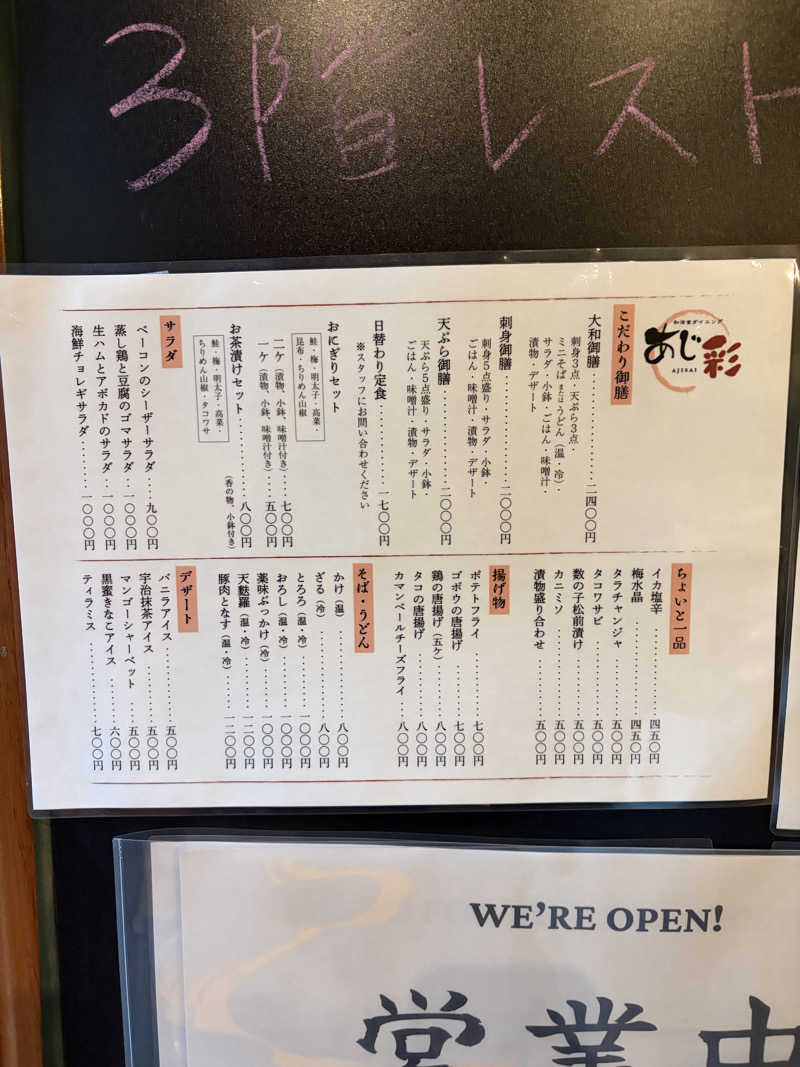 3階レスト
和洋食ダイニング
あじ彩
AJISAI
こだわり御膳
大和御膳・・・・・・・・・・・・二四〇〇円
刺身3点・天ぷら3点・
ミニそばまたはうどん（温・冷）・
サラダ・小鉢・ごはん・味噌汁・
漬物・デザート
刺身御膳・・・・・・・・・・・・二〇〇〇円
刺身5点盛り・サラダ・小鉢・
ごはん・味噌汁・漬物・デザート
天ぷら御膳・・・・・・・・・・・・二〇〇〇円
天ぷら5点盛り・サラダ・小鉢・
ごはん・味噌汁・漬物・デザート
日替わり定食・・・・・・・・・・・・一七〇〇円
※スタッフにお問い合わせください
おにぎりセット
鮭・梅・明太子・高菜・
昆布・ちりめん山椒
二ケ（漬物、小鉢、味噌汁付き）・・・・七〇〇円
一ケ（漬物、小鉢、味噌汁付き）・・・・五〇〇円
お茶漬けセット・・・・・・・・・・八〇〇円
（香の物、小鉢付き）
鮭・梅・明太子・高菜・
ちりめん山椒・タコワサ
サラダ
ベーコンのシーザーサラダ・・・・九〇〇円
蒸し鶏と豆腐のゴマサラダ・・・一〇〇〇円
生ハムとアボカドのサラダ・・・一〇〇〇円
海鮮チョレギサラダ・・・・・・・一〇〇〇円
ちょいと一品
イカ塩辛・・・・・・・・・・・・四五〇円
梅水晶・・・・・・・・・・・・四五〇円
タラチャンジャ・・・・・・・・五〇〇円
タコワサビ・・・・・・・・・・五〇〇円
数の子松前漬け・・・・・・・・五〇〇円
カニミソ・・・・・・・・・・・・五〇〇円
漬物盛り合わせ・・・・・・・・五〇〇円
揚げ物
ポテトフライ・・・・・・・・・・七〇〇円
ゴボウの唐揚げ・・・・・・・・七〇〇円
鶏の唐揚げ（五ケ）・・・・・・八〇〇円
タコの唐揚げ・・・・・・・・・・八〇〇円
カマンベールチーズフライ・・・八〇〇円
そば・うどん
かけ（温）・・・・・・・・・・・・八〇〇円
ざる（冷）・・・・・・・・・・・・八〇〇円
とろろ（温・冷）・・・・・・・・一〇〇〇円
おろし（温・冷）・・・・・・・・一〇〇〇円
薬味ぶっかけ（冷）・・・・・・一〇〇〇円
天麩羅（温・冷）・・・・・・・・一二〇〇円
豚肉となす（温・冷）・・・・・・一二〇〇円
デザート
バニラアイス・・・・・・・・・・五〇〇円
宇治抹茶アイス・・・・・・・・五〇〇円
マンゴーシャーベット・・・・五〇〇円
黒蜜きなこアイス・・・・・・・・六〇〇円
ティラミス・・・・・・・・・・・・七〇〇円
WE'RE OPEN!
営業中